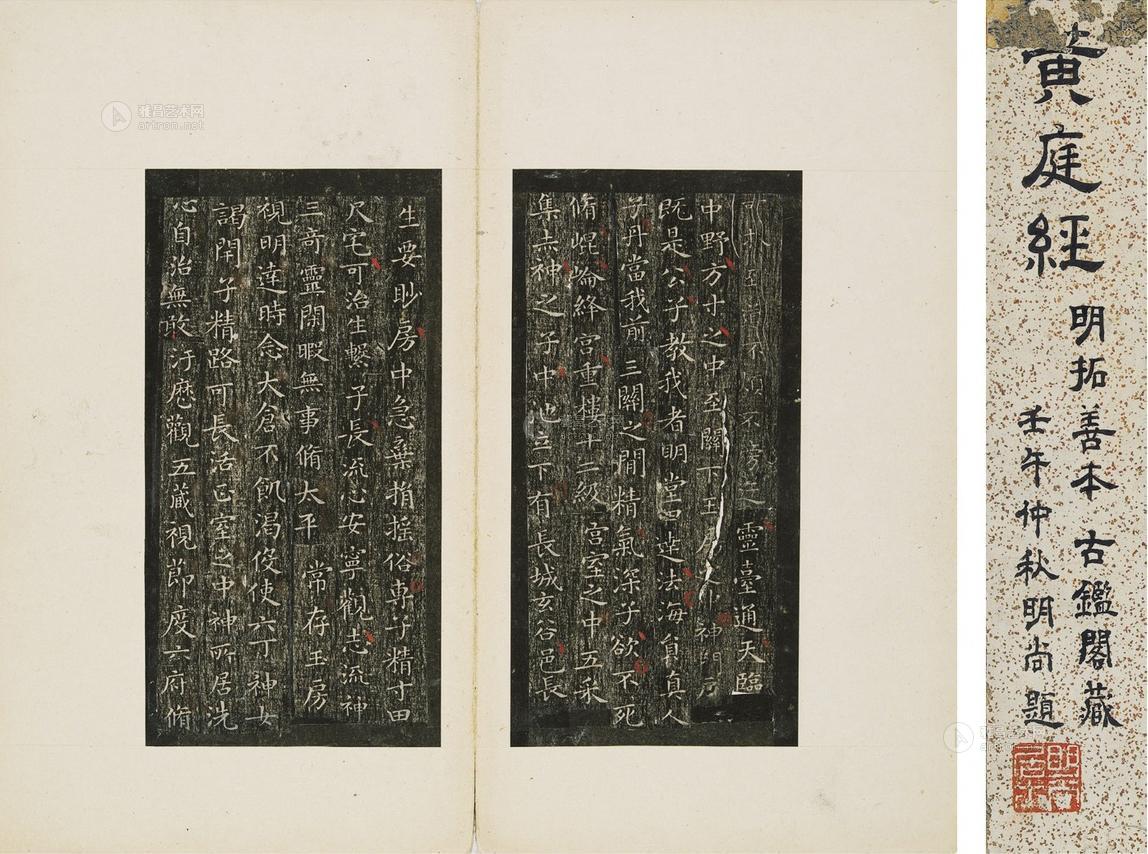 黄庭經
明拓善本 古鑑閣藏
壬午仲秋明尚題
至道不煩不旁迕靈臺通天臨
中野方寸之中至關下玉房之中神門戶
既是公子教我者明堂四達法海員真人
子丹當我前三關之間精氣深子欲不死
脩崐崘絳宮重樓十二級宮室之中五采
集赤神之子中池立下有長城玄谷邑長
生要眇房中急棄捐搖俗專子精寸田
尺宅可治生繫子長流心安寧觀志流神
三奇靈閑暇無事脩太平常存玉房
視明達時念大倉不飢渴役使六丁神女
謁閉子精路可長活正室之中神所居洗
心自治無敢汙歷觀五藏視節度六府脩
雅昌艺术网
artron.net